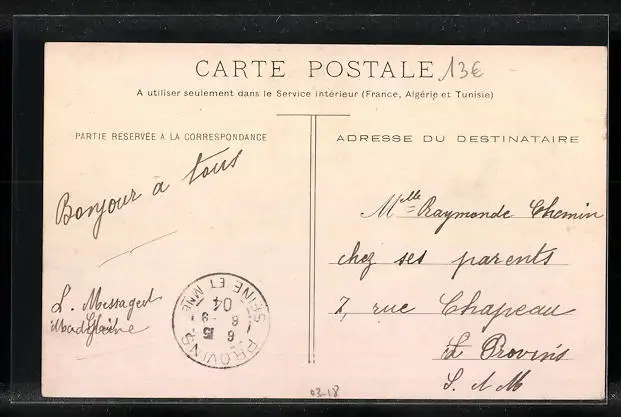 CARTE POSTALE 13€
A utiliser seulement dans le Service intérieur (France, Algérie et Tunisie)
PARTIE RESERVÉE A LA CORRESPONDANCE
ADRESSE DU DESTINATAIRE
Bonjour à tous
L. Messager
Mlle Raymonde Chemin
chez ses parents
7, rue Chapeau
Provins
S. & M
PROVINS
SEINE ET MNE
6 15
6 9
04
03-18